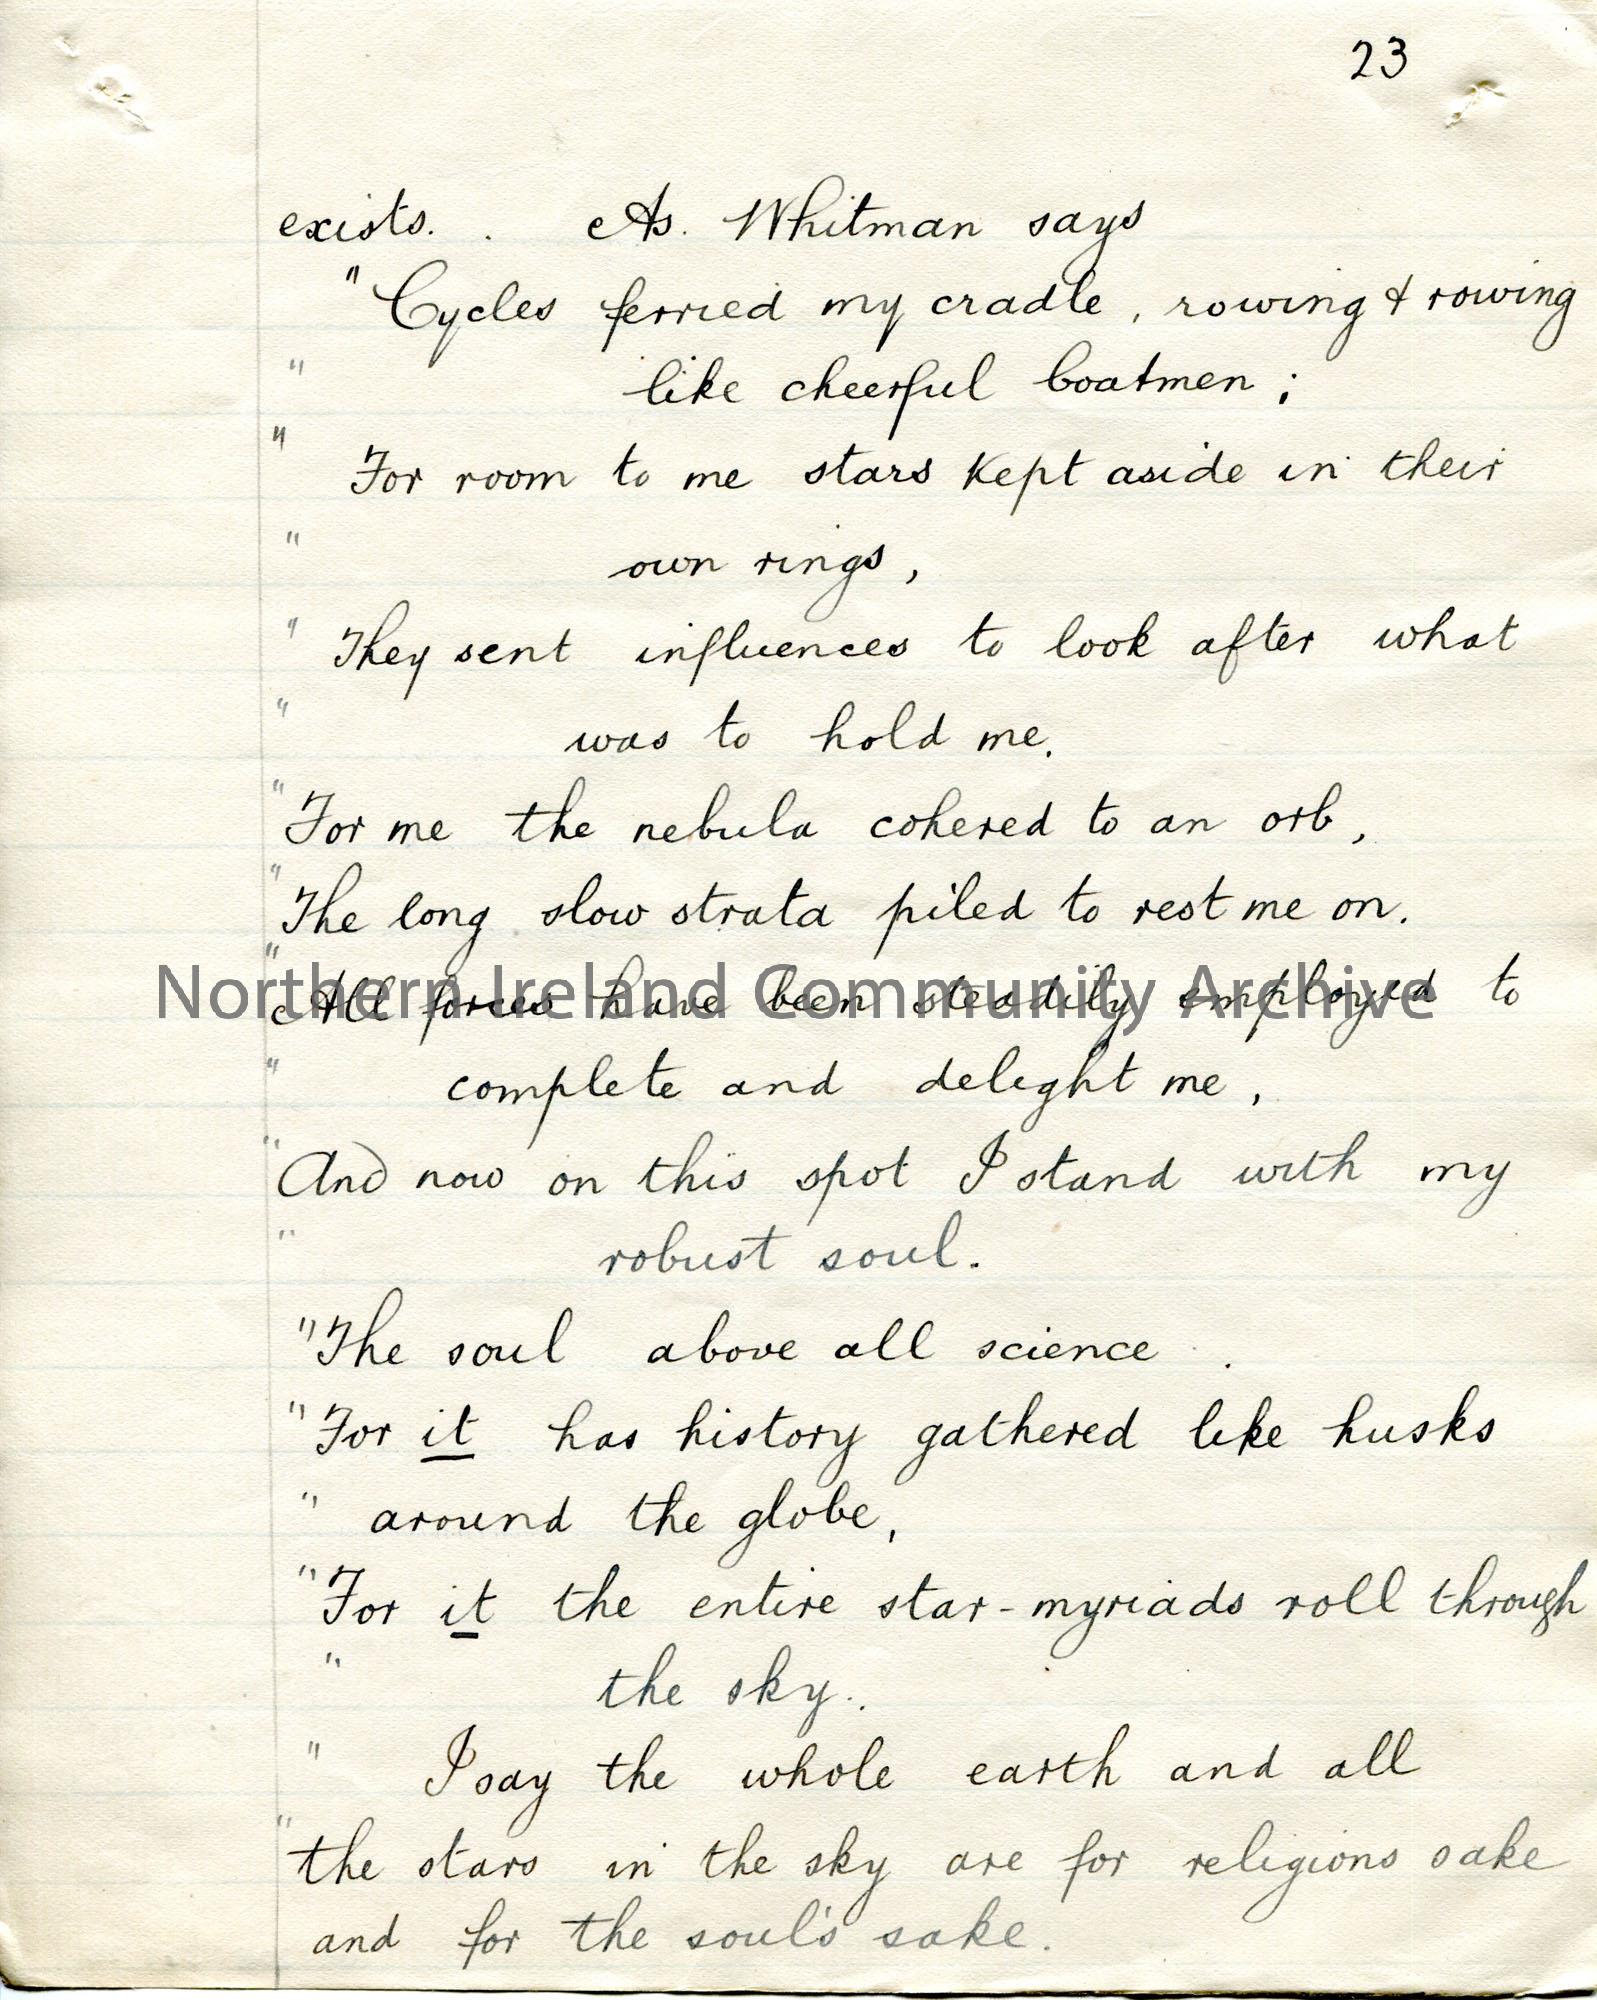 23
exists. . As. Whitman says
" Cycles ferried my cradle, rowing & rowing
" like cheerful boatmen;
" For room to me stars kept aside in their
" own rings,
" They sent influences to look after what
" was to hold me.
" For me the nebula cohered to an orb,
" The long slow strata piled to rest me on.
" All forces have been steadily employed to
Northern Ireland Community Archive
" complete and delight me,
" And now on this spot I stand with my
" robust soul.
" The soul above all science .
" For it has history gathered like husks
" around the globe,
" For it the entire star-myriads roll through
" the sky..
" I say the whole earth and all
" the stars in the sky are for religions sake
and for the soul's sake.